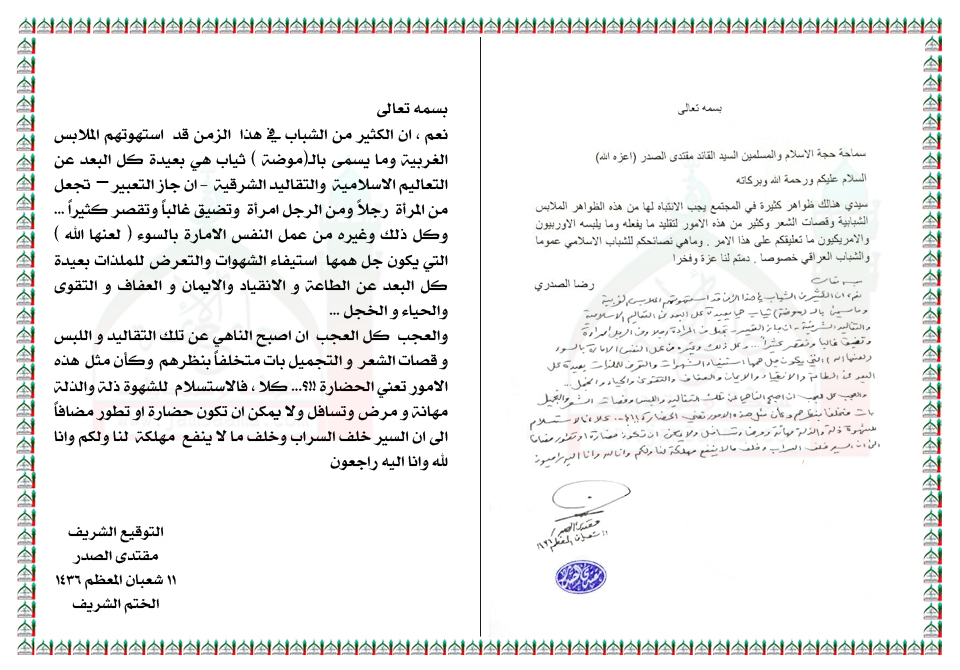 بسمه تعالى
سماحة حجة الاسلام والمسلمين السيد القائد مقتدى الصدر (اعزه الله)
السلام عليكم ورحمة الله وبركاته
سيدي هنالك ظواهر كثيرة في المجتمع يجب الانتباه لها من هذه الظواهر الملابس
الشبابية وقصات الشعر وكثير من هذه الامور لتقليد ما يفعله وما يلبسه الاوربيون
والامريكيون ما تعليقكم على هذا الامر . وماهي نصائحكم للشباب الاسلامي عموما
والشباب العراقي خصوصا . دمتم لنا عزة وفخرا
رضا الصدري
بسمه تعالى
نعم ، ان الكثير من الشباب في هذا الزمن قد استهوتهم الملابس الغربية
وما يسمى بالـ(موضة) ثياب هي بعيدة كل البعد عن التعاليم الاسلامية
والتقاليد الشرقية - ان جاز التعبير - تجعل من المرأة رجلاً ومن الرجل امرأة
وتضيق غالباً وتقصر كثيراً ... وكل ذلك وغيره من عمل النفس الامارة بالسوء
(لعنها الله) التي يكون جل همها استيفاء الشهوات والتعرض للملذات بعيدة كل
البعد عن الطاعة والانقياد والايمان والعفاف والتقوى والحياء والخجل ..
والعجب كل العجب ان اصبح الناهي عن تلك التقاليد واللبس وقصات الشعر والتجميل
بات متخلفاً بنظرهم وكأن مثل هذه الامور تعني الحضارة !!؟... كلا ، فالاستسلام
للشهوة ذلة والذلة مهانة ومرض وتسافل ولا يمكن ان تكون حضارة او تطور مضافاً
الى ان السير خلف السراب وخلف ما لا ينفع مهلكة لنا ولكم وانا لله وانا اليه راجعون
مقتدى الصدر
١١ شعبان المعظم ١٤٣٦
بسمه تعالى
نعم ، ان الكثير من الشباب في هذا الزمن قد استهوتهم الملابس
الغربية وما يسمى بالـ(موضة ) ثياب هي بعيدة كل البعد عن
التعاليم الاسلامية والتقاليد الشرقية - ان جاز التعبير – تجعل
من المرأة رجلاً ومن الرجل امرأة وتضيق غالباً وتقصر كثيراً ...
وكل ذلك وغيره من عمل النفس الامارة بالسوء ( لعنها الله )
التي يكون جل همها استيفاء الشهوات والتعرض للملذات بعيدة
كل البعد عن الطاعة و الانقياد والايمان و العفاف و التقوى
والحياء و الخجل ...
والعجب كل العجب ان اصبح الناهي عن تلك التقاليد و اللبس
و قصات الشعر و التجميل بات متخلفاً بنظرهم وكأن مثل هذه
الامور تعني الحضارة !!؟... كلا ، فالاستسلام للشهوة ذلة والذلة
مهانة و مرض وتسافل ولا يمكن ان تكون حضارة او تطور مضافاً
الى ان السير خلف السراب وخلف ما لا ينفع مهلكة لنا ولكم وانا
لله وانا اليه راجعون
التوقيع الشريف
مقتدى الصدر
١١ شعبان المعظم ١٤٣٦
الختم الشريف